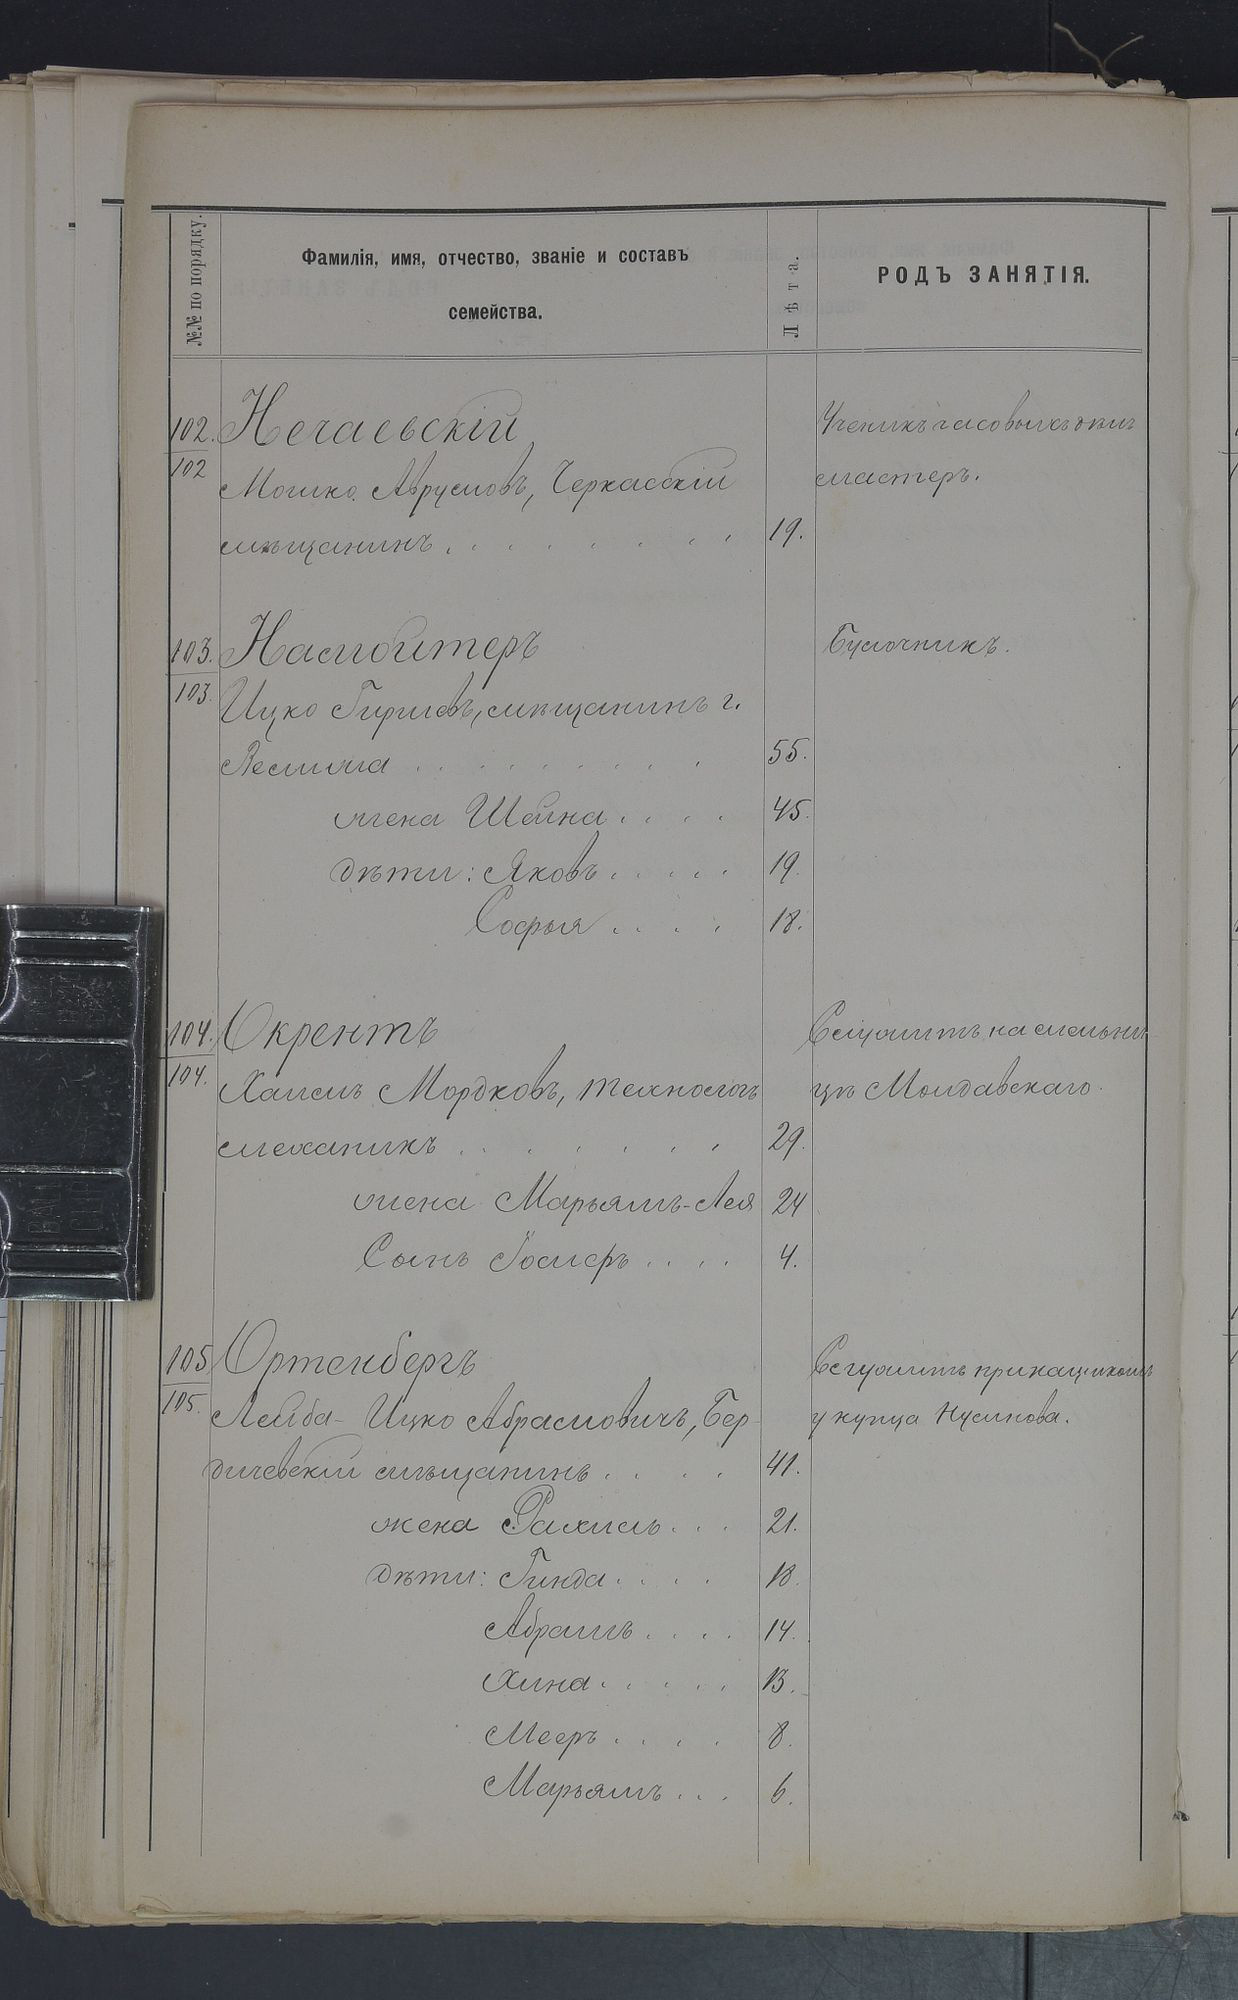 №№ по порядку.
Фамилія, имя, отчество, званіе и составъ
семейства.
Лѣта.
РОДЪ ЗАНЯТІЯ.
102. Нечаевскій
Ученикъ часовыхъ дѣлъ
102 Мошко Аврумовъ, Черкасскій
мастеръ.
мѣщанинъ . . . . . . . . 19.
103. Насмойтеръ
Булочникъ.
103. Ицко Гиршевъ, мѣщанинъ г.
. . . . . . . . . 55.
жена Шейна . . . . 45.
дѣти: Яковъ . . . . . 19.
Софья . . . . 18.
104. Окрентъ
Служитъ на мельни-
104. Хаимъ Мордковъ, технологъ
цѣ Молдавскаго.
механикъ . . . . . . . . 29.
жена Марьямъ-Лея 24
Сынъ Іосифъ . . . . 4.
105 Ортенбергъ
Служитъ прикащикомъ
105. Лейба-Ицко Абрамовичъ, Бер-
у купца Нусинова.
дичевскій мѣщанинъ . . . . 41.
жена Рахиль . . . 21.
дѣти: Гинда . . . . 18.
Абрамъ . . . . 14.
Хина . . . . . 13.
Мееръ . . . . 8.
Марьямъ . . . 6.